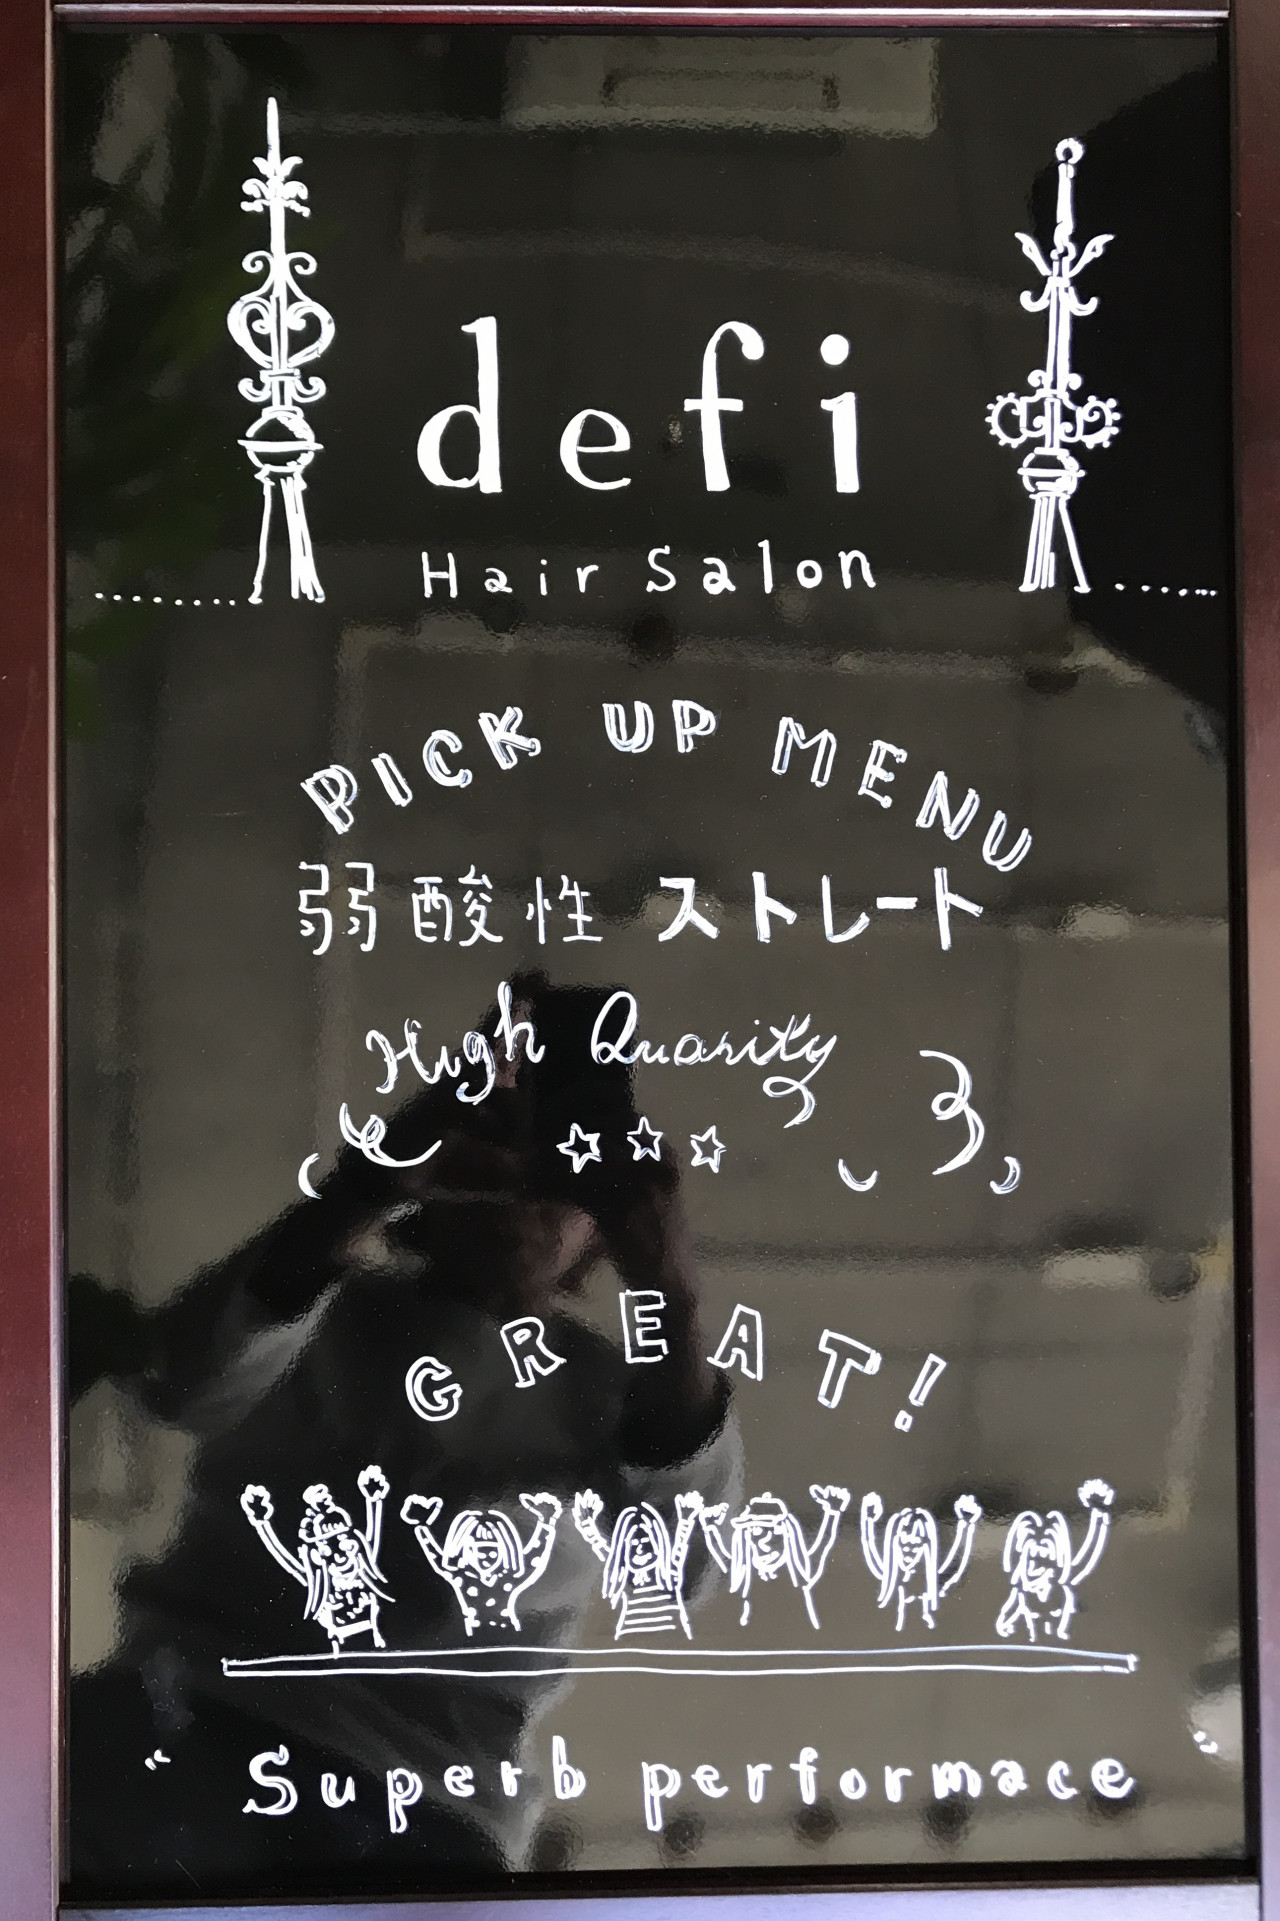 defi
Hair Salon
PICK UP MENU
弱酸性 ストレート
High Quarity
GREAT!
"Superb performace"